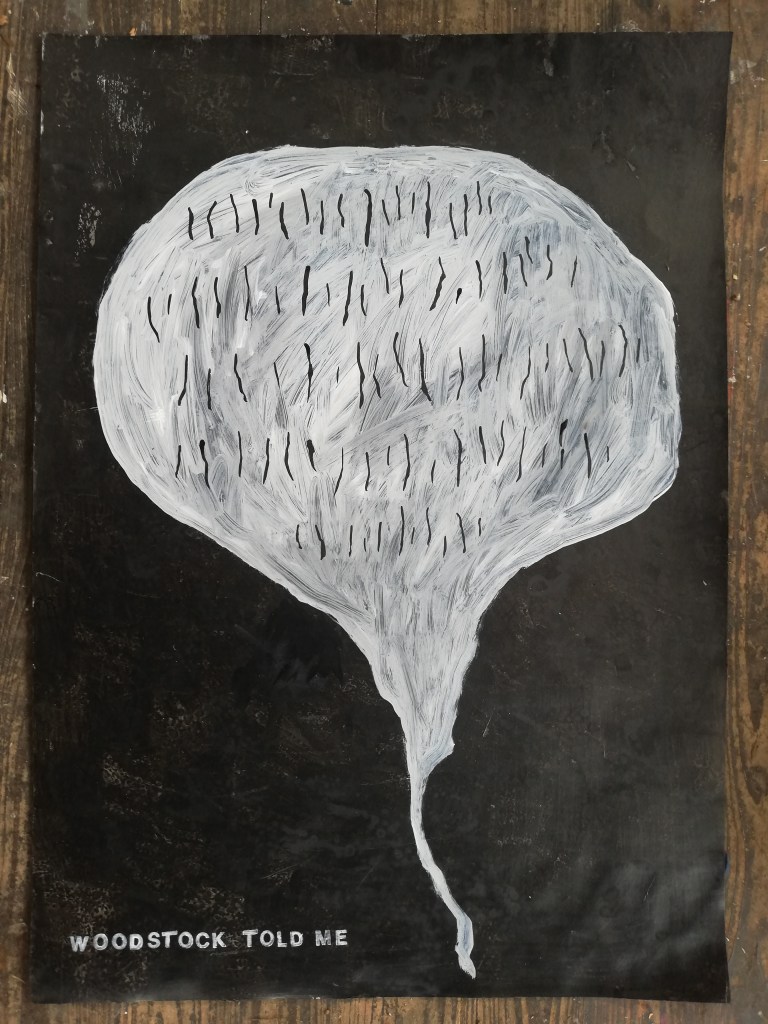 WOODSTOCK TOLD ME